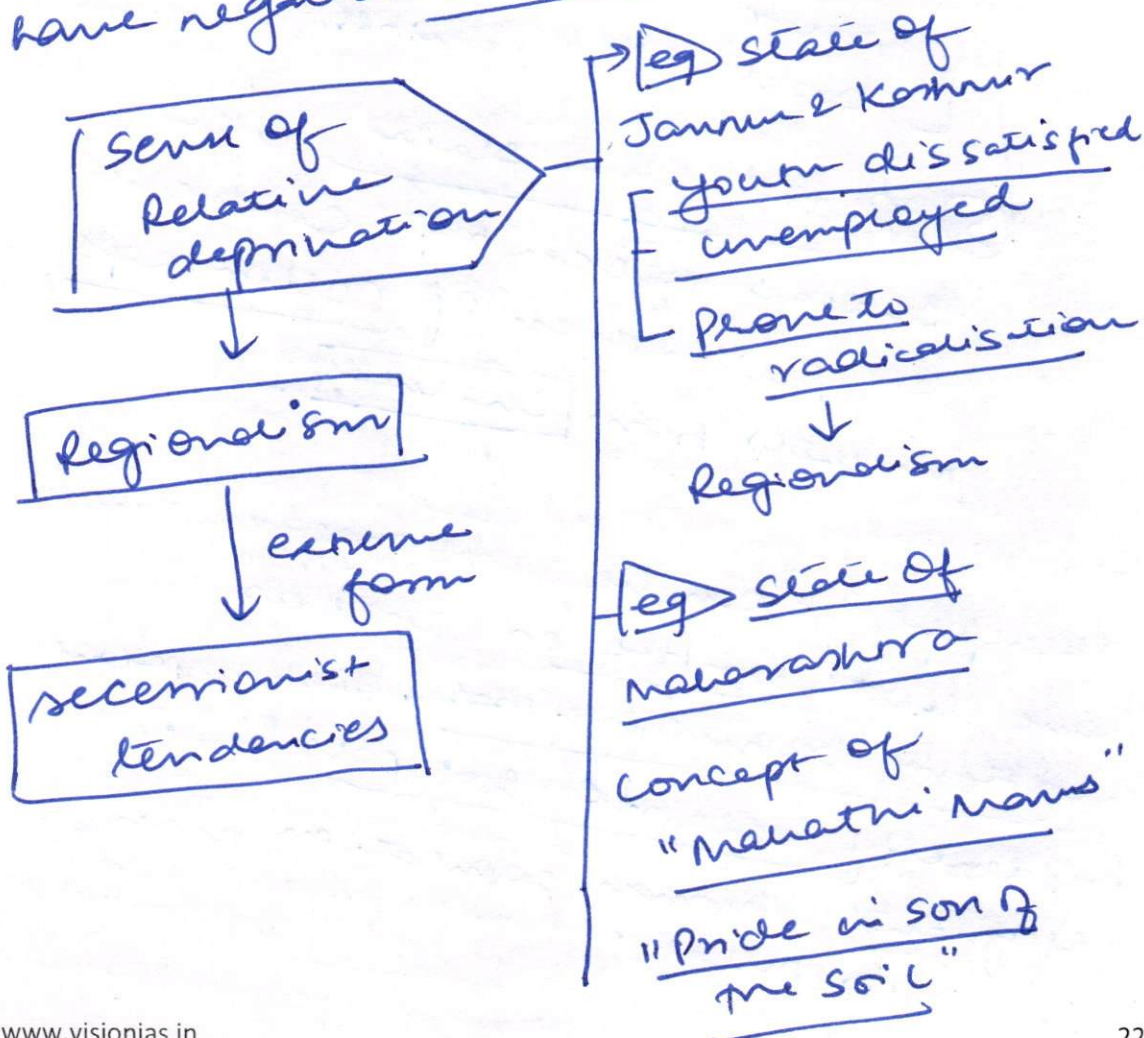 have
sense of
Relative
deprivation
Regionalism
extreme
form
secessionist
tendencies
eg state of
Jammu & Kashmir
youth dissatisfied
unemployed
prone to
radicalisation
Regionalism
eg state of
Maharashtra
concept of
"Marathi Manus"
"Pride in son of
the soil"
www.visionias.in
22